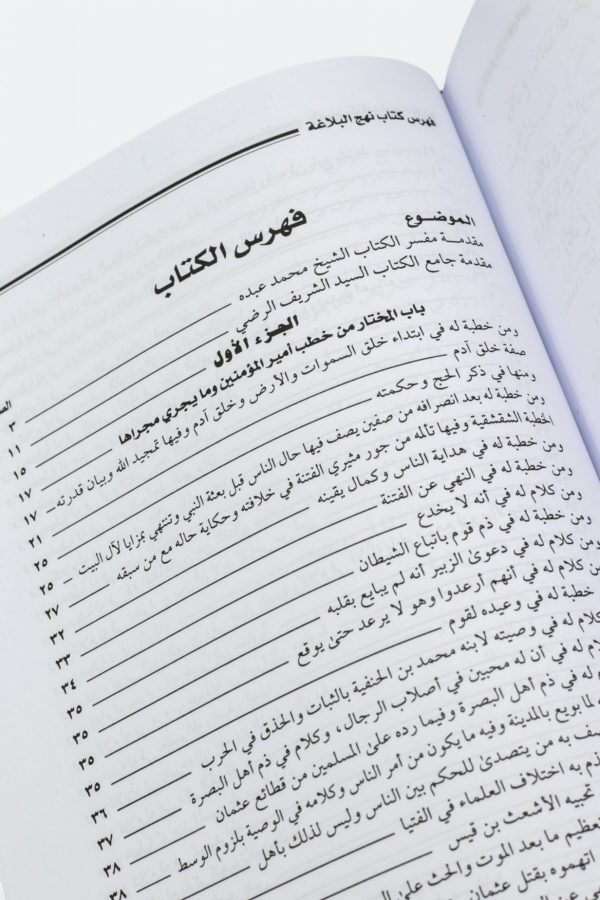 فهرس كتاب نهج البلاغة
فهرس الكتاب
الموضوع
مقدمة مفسر الكتاب الشيخ محمد عبده ٣
مقدمة جامع الكتاب السيد الشريف الرضي ١١
الجزء الأول
باب المختار من خطب أمير المؤمنين وما يجري مجراها ١٥
ومن خطبة له في ابتداء خلق السموات والأرض وخلق آدم وفيها تمجيد الله وبيان قدرته ١٧
صفة خلق آدم ١٧
ومنها في ذكر الحج وحكمته ٢١
ومن خطبة له بعد انصرافه من صفين يصف فيها حال الناس قبل بعثة النبي وتنتهي بمزايا لآل البيت ٢٥
الخطبة الشقشقية وفيها تألمه من جور مثيري الفتنة في خلافته وحكاية حاله مع من سبقه ٢٥
ومن خطبة له في هداية الناس وكمال يقينه ٢٧
ومن خطبة له في النهي عن الفتنة ٣٢
ومن كلام له في أنه لا يخدع ٣٣
ومن خطبة له في ذم قوم باتباع الشيطان ٣٤
ومن كلام له في دعوى الزبير أنه لم يبايع بقلبه ٣٥
من كلام له في أنهم أرعدوا وهو لا يرعد حتى يوقع ٣٥
خطبة له في وعيده لقوم ٣٥
كلام له في وصيته لابنه محمد بن الحنفية بالثبات والحذق في الحرب ٣٦
له في أن له محبين في أصلاب الرجال، وكلام في ذم أهل البصرة ٣٧
له في ذم أهل البصرة وفيما رده على المسلمين من قطائع عثمان ٣٨
لما بويع بالمدينة وفيه ما يكون من أمر الناس وكلامه في الوصية بلزوم الوسط ٣٨
به من يتصدى للحكم بين الناس وليس لذلك بأهل
ذم به اختلاف العلماء في الفتيا
تجيبه الأشعث بن قيس
تعظيم ما بعد الموت والحث على
اتهموه بقتل عثمان